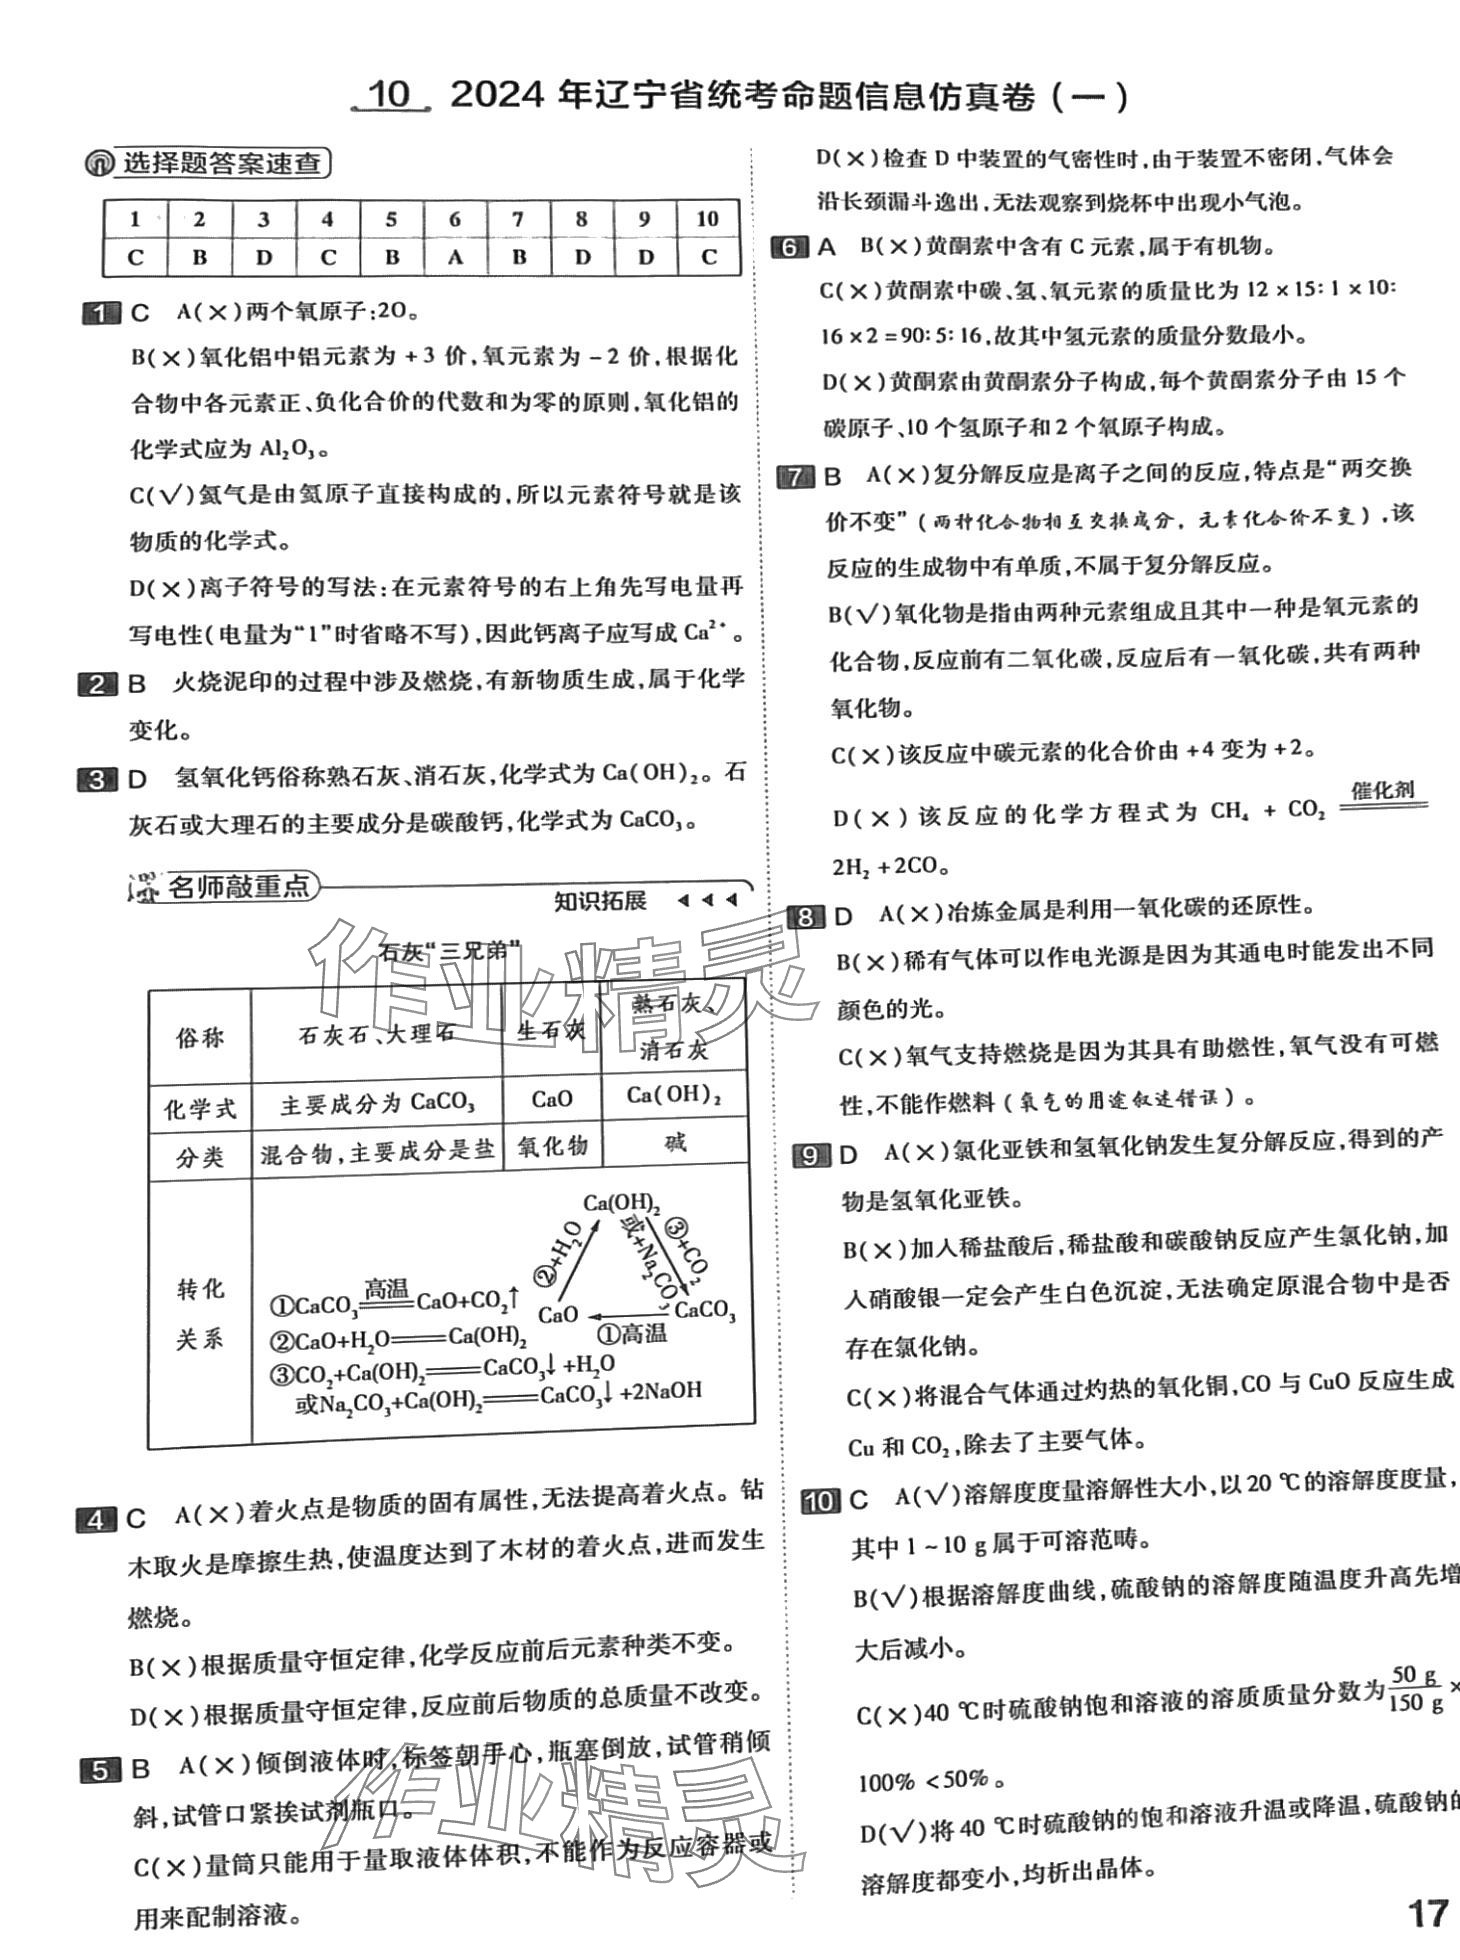 10 2024 年辽宁省统考命题信息仿真卷(一)
选择题答案速查
1 2 3 4 5 6 7 8 9 10
C B D C B A B D D C
1 C A(×)两个氧原子:2O。
B(×)氧化铝中铝元素为 +3 价,氧元素为 -2 价,根据化
合物中各元素正、负化合价的代数和为零的原则,氧化铝的
化学式应为 Al₂O₃。
C(√)氦气是由氦原子直接构成的,所以元素符号就是该
物质的化学式。
D(×)离子符号的写法:在元素符号的右上角先写电量再
写电性(电量为“1”时省略不写),因此钙离子应写成 Ca²⁺。
2 B 火烧泥印的过程中涉及燃烧,有新物质生成,属于化学
变化。
3 D 氢氧化钙俗称熟石灰、消石灰,化学式为 Ca(OH)₂。石
灰石或大理石的主要成分是碳酸钙,化学式为 CaCO₃。
名师敲重点
知识拓展
石灰“三兄弟”
俗称 石灰石、大理石 生石灰 熟石灰、
消石灰
化学式 主要成分为 CaCO₃ CaO Ca(OH)₂
分类 混合物,主要成分是盐 氧化物 碱
转化
关系
Ca(OH)₂
②+H₂O
或+Na₂CO₃
③+CO₂
CaO
CaCO₃
①高温
①CaCO₃ 高温 CaO+CO₂↑
②CaO+H₂O══Ca(OH)₂
③CO₂+Ca(OH)₂══CaCO₃↓+H₂O
或Na₂CO₃+Ca(OH)₂══CaCO₃↓+2NaOH
4 C A(×)着火点是物质的固有属性,无法提高着火点。钻
木取火是摩擦生热,使温度达到了木材的着火点,进而发生
燃烧。
B(×)根据质量守恒定律,化学反应前后元素种类不变。
D(×)根据质量守恒定律,反应前后物质的总质量不改变。
5 B A(×)倾倒液体时,标签朝手心,瓶塞倒放,试管稍倾
斜,试管口紧挨试剂瓶口。
C(×)量筒只能用于量取液体体积,不能作为反应容器或
用来配制溶液。
D(×)检查 D 中装置的气密性时,由于装置不密闭,气体会
沿长颈漏斗逸出,无法观察到烧杯中出现小气泡。
6 A B(×)黄酮素中含有 C 元素,属于有机物。
C(×)黄酮素中碳、氢、氧元素的质量比为 12×15∶1×10∶
16×2=90∶5∶16,故其中氢元素的质量分数最小。
D(×)黄酮素由黄酮素分子构成,每个黄酮素分子由 15 个
碳原子、10 个氢原子和 2 个氧原子构成。
7 B A(×)复分解反应是离子之间的反应,特点是“两交换
价不变”(两种化合物相互交换成分,元素化合价不变),该
反应的生成物中有单质,不属于复分解反应。
B(√)氧化物是指由两种元素组成且其中一种是氧元素的
化合物,反应前有二氧化碳,反应后有一氧化碳,共有两种
氧化物。
C(×)该反应中碳元素的化合价由 +4 变为 +2。
D(×)该反应的化学方程式为 CH₄ + CO₂ 催化剂
2H₂+2CO。
8 D A(×)冶炼金属是利用一氧化碳的还原性。
B(×)稀有气体可以作电光源是因为其通电时能发出不同
颜色的光。
C(×)氧气支持燃烧是因为其具有助燃性,氧气没有可燃
性,不能作燃料(氧气的用途叙述错误)。
9 D A(×)氯化亚铁和氢氧化钠发生复分解反应,得到的产
物是氢氧化亚铁。
B(×)加入稀盐酸后,稀盐酸和碳酸钠反应产生氯化钠,加
入硝酸银一定会产生白色沉淀,无法确定原混合物中是否
存在氯化钠。
C(×)将混合气体通过灼热的氧化铜,CO 与 CuO 反应生成
Cu 和 CO₂,除去了主要气体。
10 C A(√)溶解度度量溶解性大小,以 20 ℃的溶解度度量,
其中 1~10 g 属于可溶范畴。
B(√)根据溶解度曲线,硫酸钠的溶解度随温度升高先增
大后减小。
C(×)40 ℃时硫酸钠饱和溶液的溶质质量分数为 50 g/150 g ×
100% <50%。
D(√)将 40 ℃时硫酸钠的饱和溶液升温或降温,硫酸钠的
溶解度都变小,均析出晶体。
作业精灵
作业精灵
17